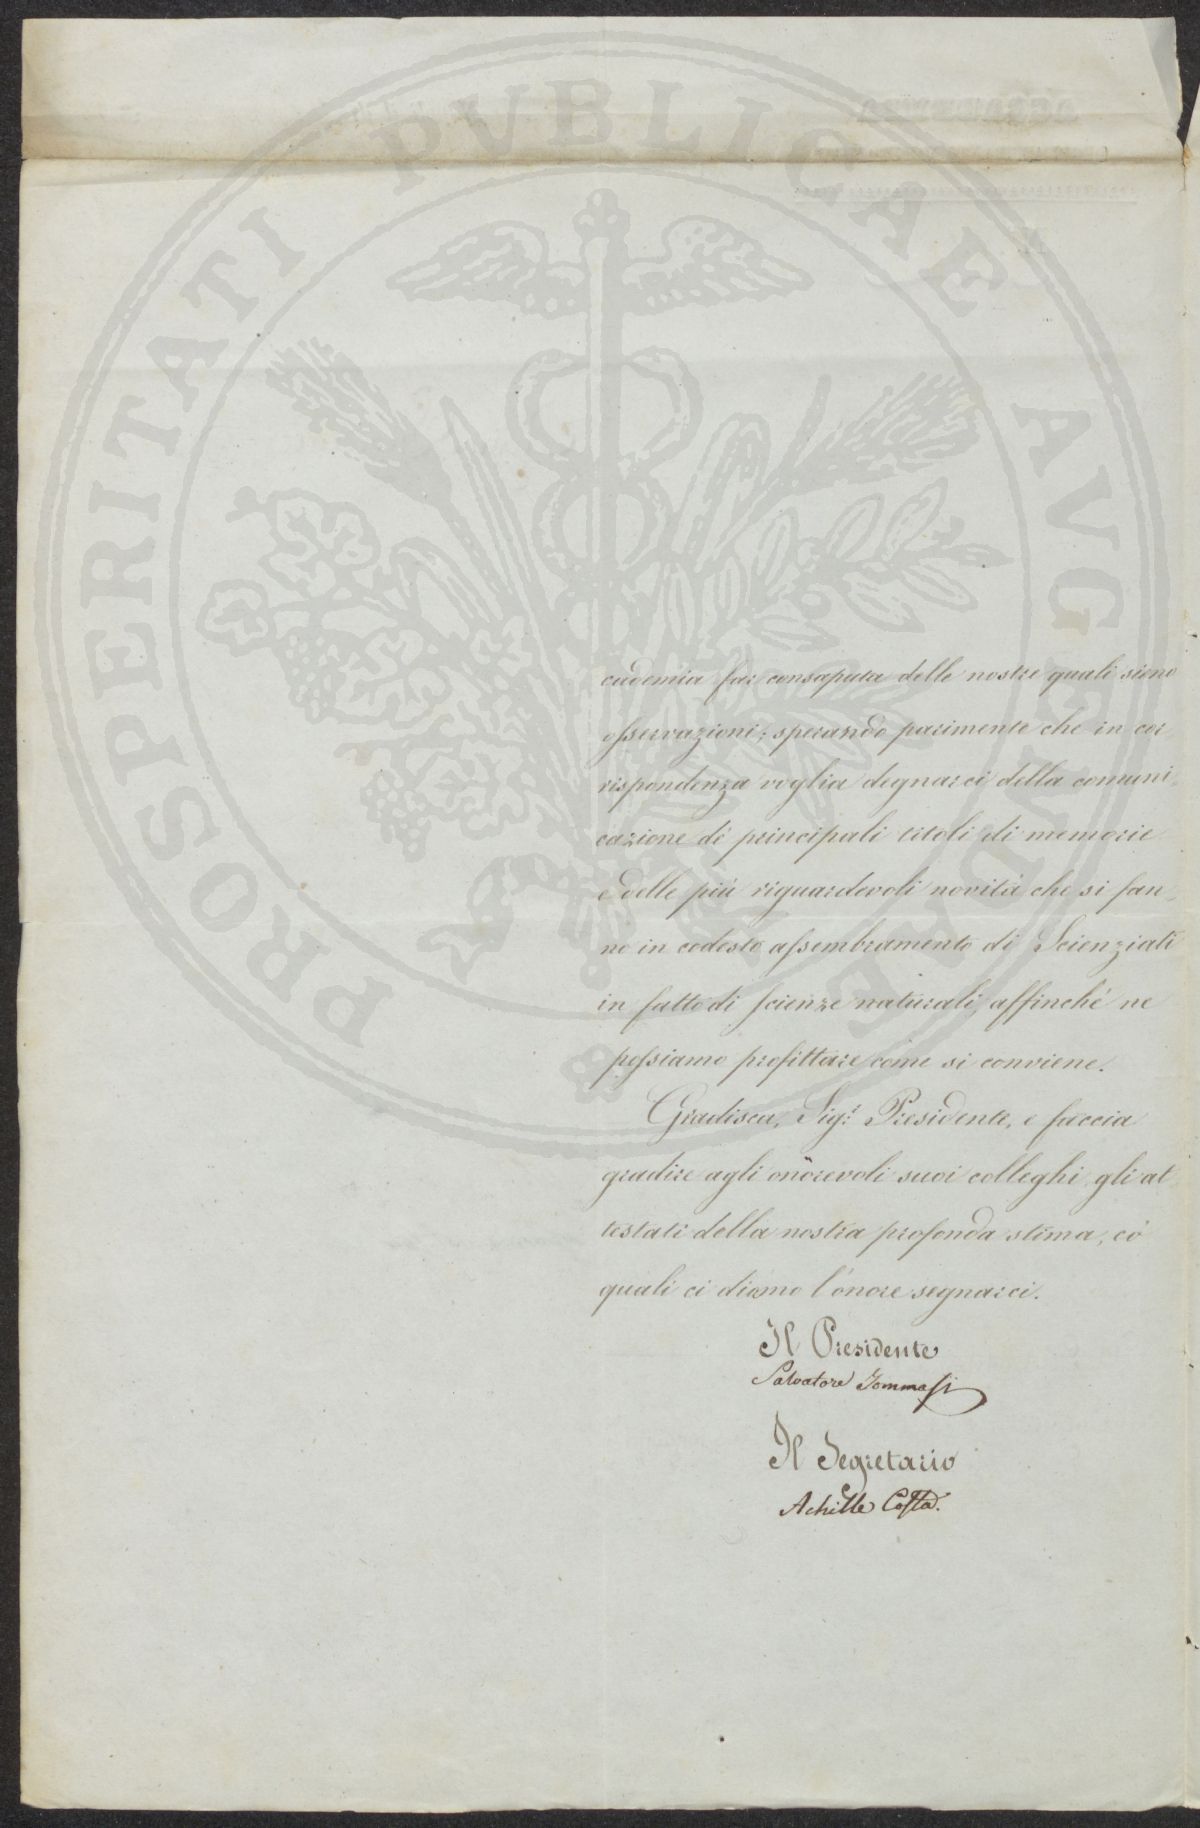 PROSPERITATI PVBLICAE AVGENDAE
cademia far consaputa delle nostre quali sieno
osservazioni; sperando parimente che in cor
rispondenza voglia degnarci della comuni
cazione di principali titoli di memorie
e delle più riguardevoli novità che si fan
no in codesto assembramento di Scienziati
in fatto di scienze naturali, affinchè ne
possiamo profittare come si conviene.
Gradisca, Sigr. Presidente, e faccia
gradire agli onorevoli suoi colleghi gli at
testati della nostra profonda stima, co'
quali ci diamo l'onore segnarci.
Il Presidente
Salvatore Tommasi
Il Segretario
Achille Costa.